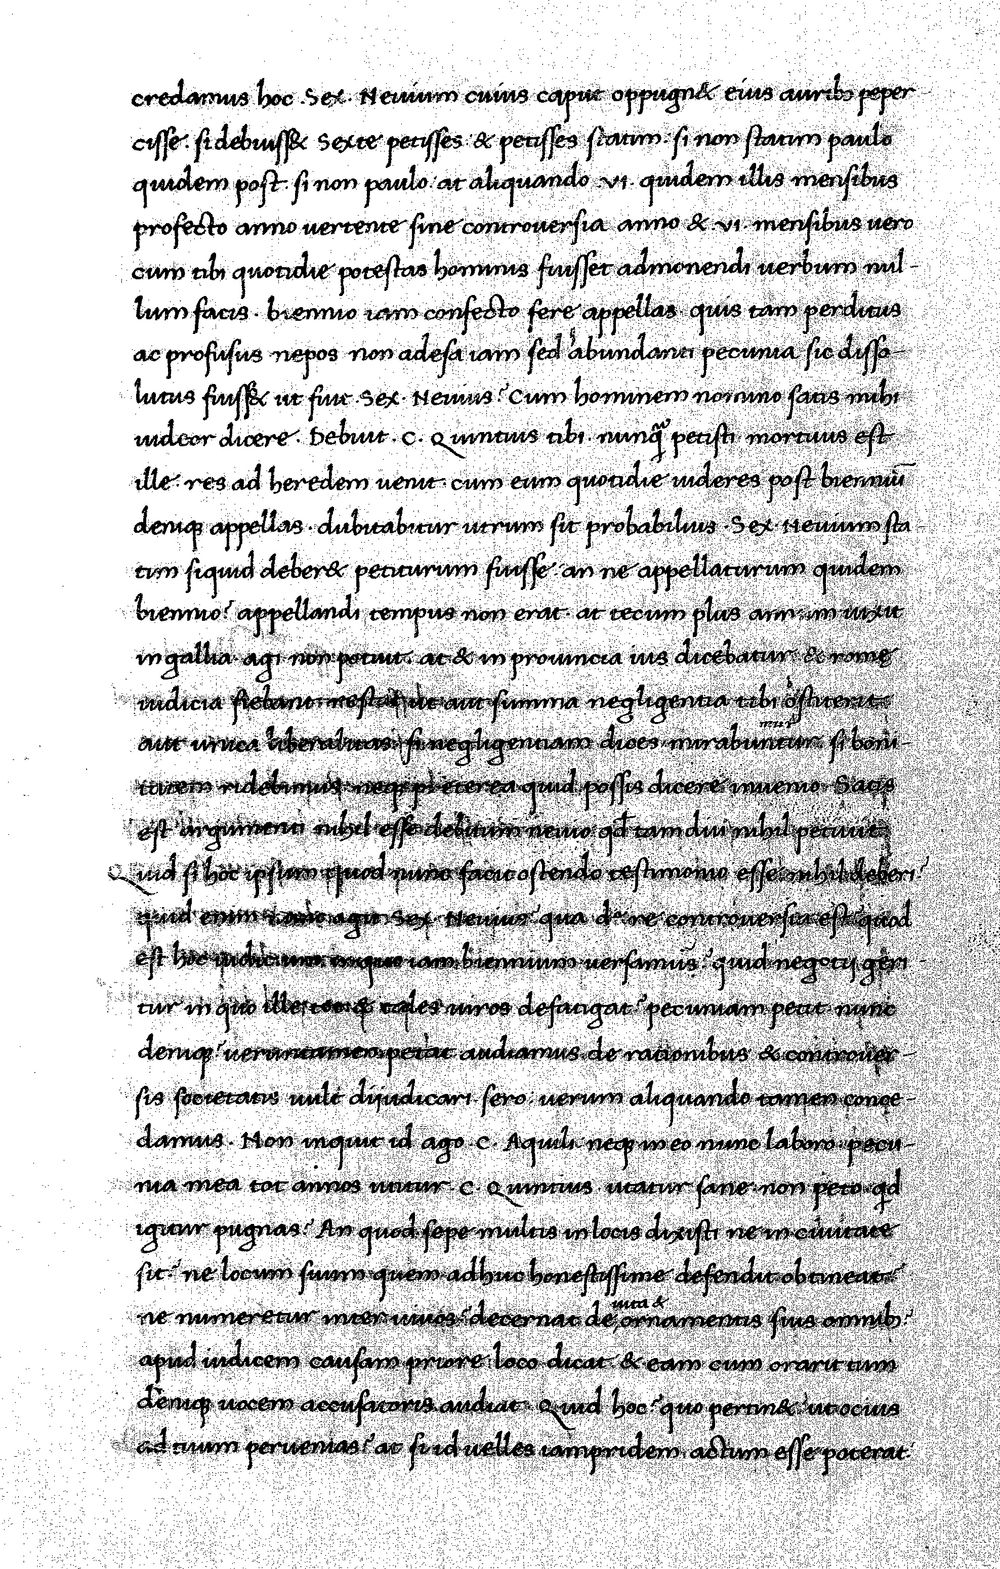 credamus hoc Sex. Neuium cuius caput oppugn& eius aurib; peper
cisse. si debuiss& Sexte petisses & petisses statim. si non statim paulo
quidem post. si non paulo. at aliquando .VI. quidem illis mensibus
profecto anno uertente sine controuersia anno & .VI. mensibus uero
cum tibi quotidie potestas hominis fuisset admonendi uerbum nul-
lum facis. biennio iam confecto fere appellas. quis tam perditus
ac profusus nepos non adesa iam sed abundanti pecunia sic disso-
lutus fuiss& ut fuit Sex. Neuius? Cum hominem nomino satis mihi
uideor dicere. Debuit. C. Quintius tibi. nunq̃ petisti. mortuus est
ille. res ad heredem uenit. cum eum quotidie uideres post bienniū
deniq; appellas. dubitabitur utrum sit probabilius. Sex. Neuium sta
tim siquid deber& petiturum fuisse. an ne appellaturum quidem
biennio? appellandi tempus non erat. at tecum plus annum uixit
in gallia agi non potuit. at & in prouincia ius dicebatur & romę
iudicia fiebant. restat ut aut summa negligentia tibi obstiterit
aut unica liberalitas. si negligentiam dices mirabuntur mur si boni-
tatem ridebimus neq; pręterea quid possis dicere inuenio. Satis
est argumenti nihil esse debitum neuio qđ tam diu nihil petiuit.
Quid si hoc ipsum quod nunc facit ostendo testimonio esse nihil deberi?
quid enim agit Sex. Neuius? qua de re controuersia est? quod
est hoc iudicium in quo iam biennium uersamus? quid negotij geri
tur in quo ille tot & tales uiros defatigat? pecuniam petit nunc
deniq;? ueruntamen petat audiamus. de rationibus & controuer-
sis societatis uult diiudicari. sero. uerum aliquando tamen conce-
damus. Non inquit id ago C. Aquili. neq; in eo nunc laboro. pecu-
nia mea tot annos utitur C. Quintius. utatur sane. non peto. qđ
igitur pugnas? An quod sepe multis in locis dixisti ne in ciuitate
sit? ne locum suum quem adhuc honestissime defendit obtineat?
ne numeretur inter uiuos? decernat de uita & ornamentis suis omnib;?
apud iudicem causam priore loco dicat. & eam cum orarit tum
deniq; uocem accusatoris audiat. Quid hoc? quo pertin&? ut ocius
ad tuum peruenias? at si id uelles iampridem actum esse poterat.